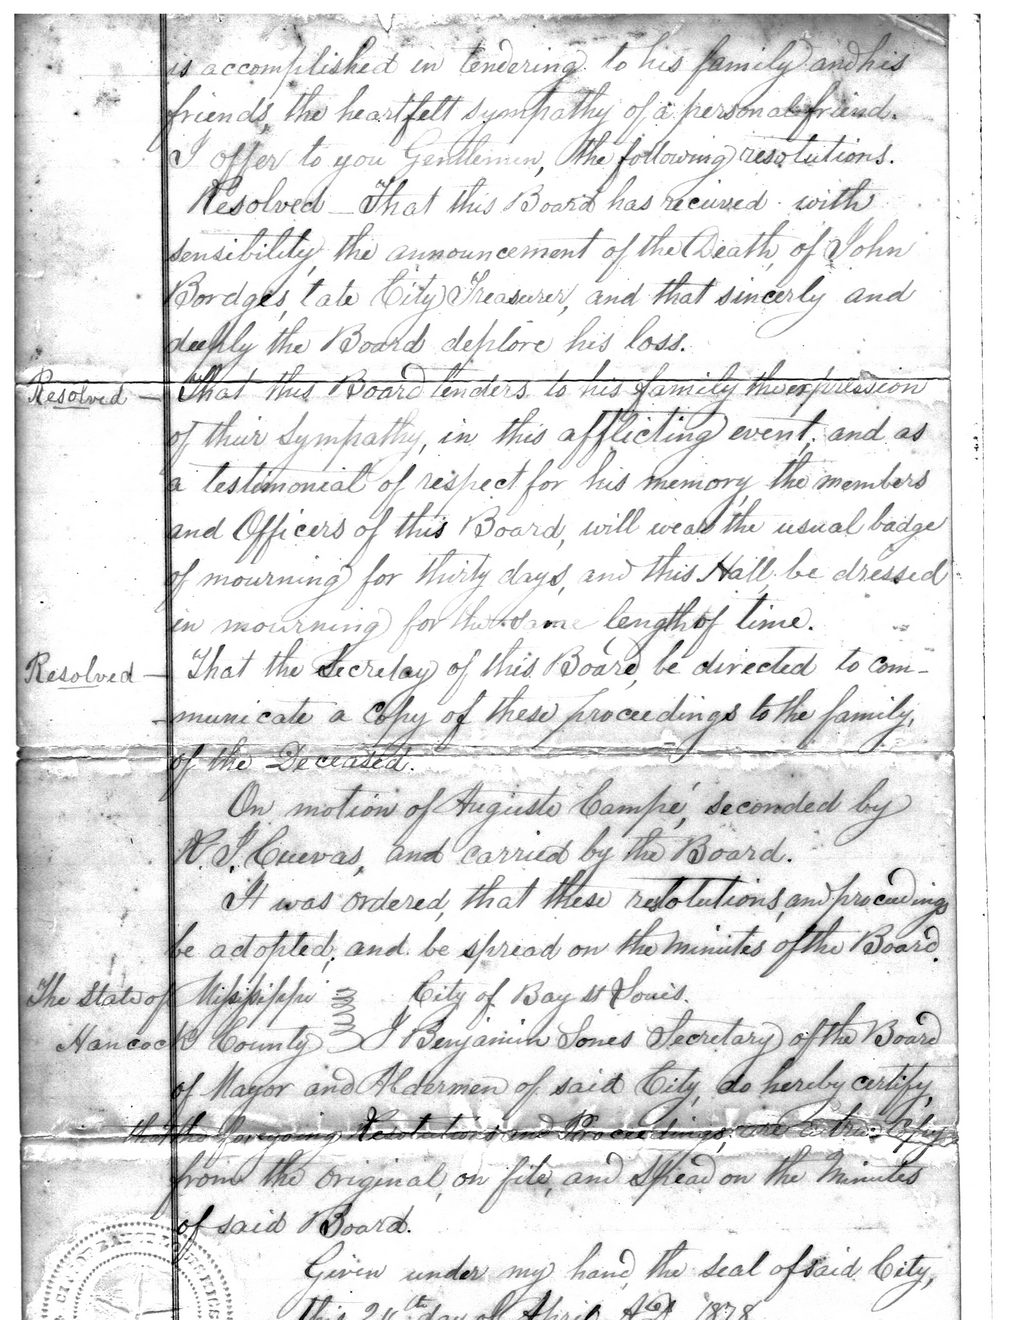 is accomplished in tendering to his family and his
friends, the heartfelt sympathy of a personal friend.
I offer to you Gentlemen, the following resolutions.
Resolved - That this Board has recieved with
sensibility, the announcement of the Death, of John
Bordges, late City Treasurer, and that sincerly and
deeply the Board deplore his loss.
Resolved - That this Board tenders to his family the expression
of their Sympathy, in this afflicting event, and as
a testimonial of respect for his memory, the members
and Officers of this Board, will wear the usual badge
of mourning for thirty days, and this Hall, be dressed
in mourning for the same length of time.
Resolved - That the Secretay of this Board, be directed to com-
-municate a Copy of these proceedings to the family,
of the Deceased.
On motion of Auguste Campé, seconded by
R. J. Cuevas, and carried by the Board.
It was ordered, that these resolutions, and proceedings
be adopted, and be spread on the Minutes of the Board.
The State of Mississippi City of Bay St Louis.
Hancock County I Benjamin Jones Secretary of the Board
of Mayor and Aldermen of said City, do hereby certify,
that the foregoing Resolutions and Proceedings, are a true Copy
from the original, on file, and Spread on the Minutes
of said Board.
Given under my hand, the Seal of said City,
this 24th day of April A.D. 1878
CITY OF BAY ST